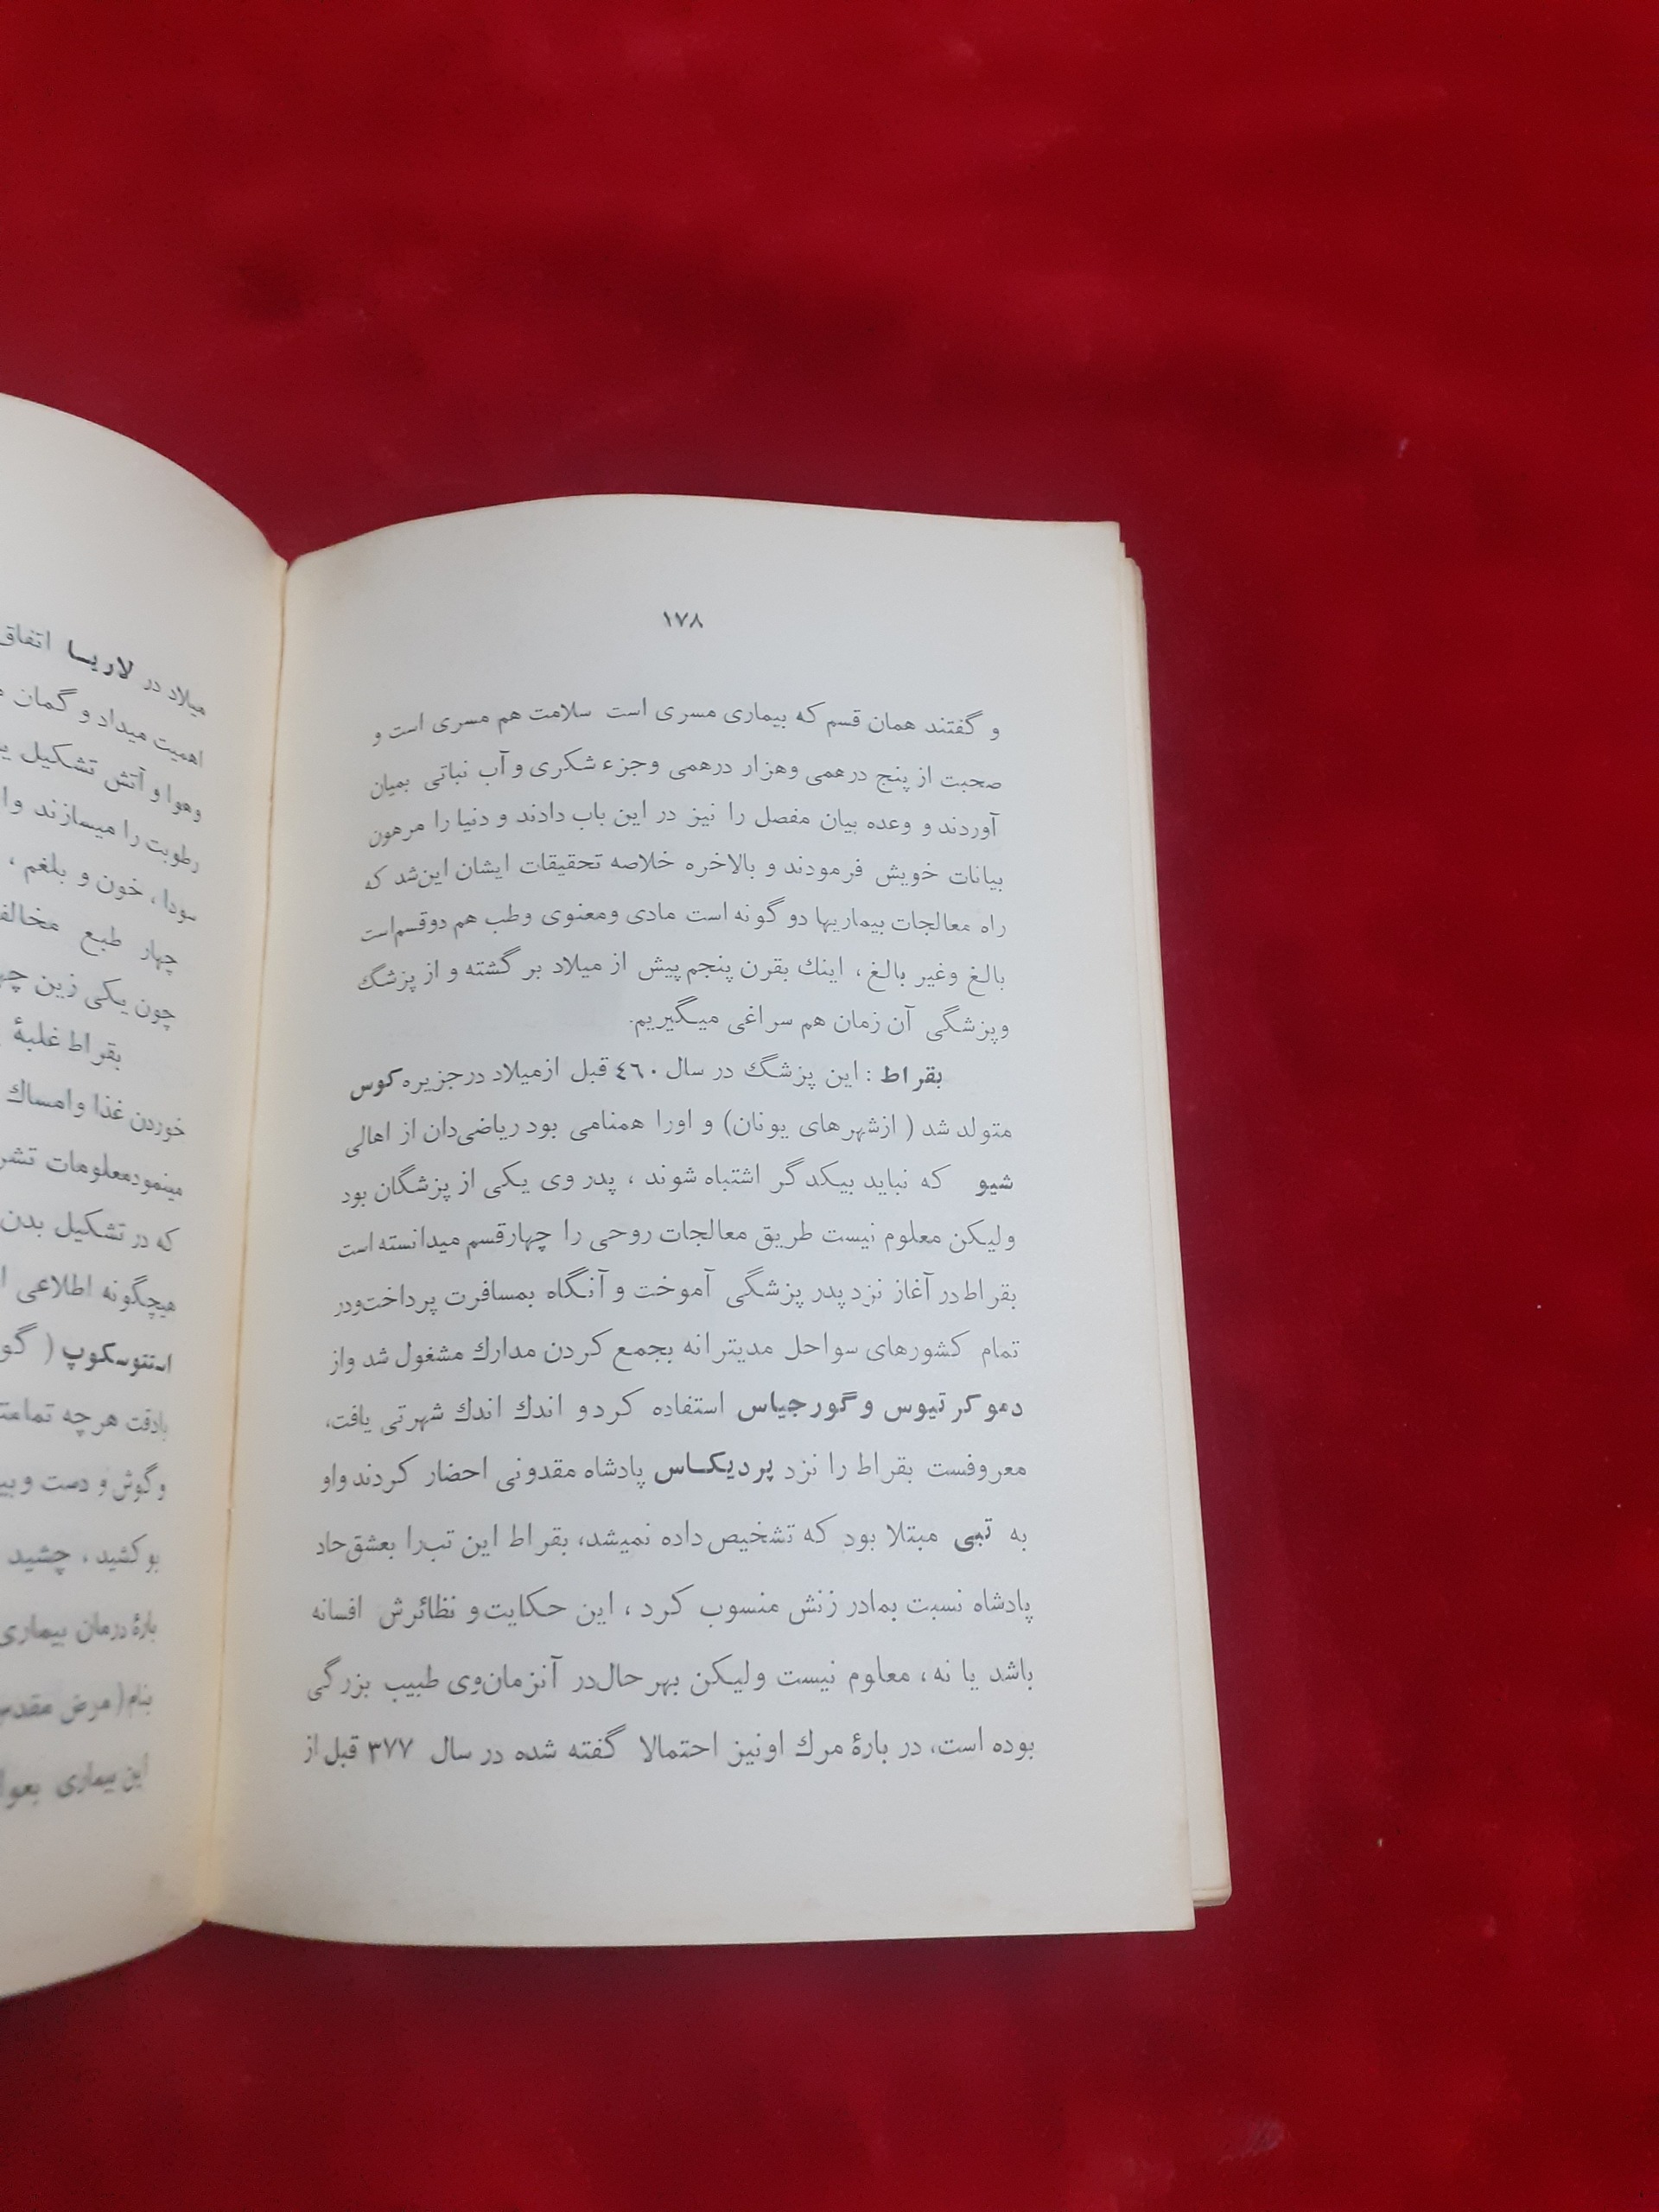 ۱۷۸
و گفتند همان قسم که بیماری مسری است سلامت هم مسری است و
صحبت از پنج درهمی وهزار درهمی وجزء شکری و آب نباتی بمیان
آوردند و وعده بیان مفصل را نیز در این باب دادند و دنیا را مرهون
بیانات خویش فرمودند و بالاخره خلاصه تحقیقات ایشان این‌شد که
راه معالجات بیماریها دو گونه است مادی ومعنوی وطب هم دوقسم‌است
بالغ وغیر بالغ، اینك بقرن پنجم‌پیش از میلاد بر گشته و از پزشگ
وپزشگی آن زمان هم سراغی میگیریم.
بقراط : این پزشگ در سال ٤٦٠ قبل ازمیلاد درجزیره کوس
متولد شد ( ازشهرهای یونان) و اورا همنامی بود ریاضی‌دان از اهالی
شیو که نباید بیکدگر اشتباه شوند ، پدر وی یکی از پزشگان بود
ولیکن معلوم نیست طریق معالجات روحی را چهارقسم میدانسته است
بقراط در آغاز نزد پدر پزشگی آموخت و آنگاه بمسافرت پرداخت‌ودر
تمام کشورهای سواحل مدیترانه بجمع کردن مدارك مشغول شد واز
دموکرتیوس و گورجیاس استفاده کرد و اندك اندك شهرتی یافت،
معروفست بقراط را نزد پردیکاس پادشاه مقدونی احضار کردند واو
به تبی مبتلا بود که تشخیص داده نمیشد، بقراط این تب‌را بعشق‌حاد
پادشاه نسبت بمادر زنش منسوب کرد ، این حکایت و نظائرش افسانه
باشد یا نه، معلوم نیست ولیکن بهر حال‌در آنزمان‌وی طبیب بزرگی
بوده است، در بارهٔ مرك اونیز احتمالا گفته شده در سال ۳۷۷ قبل از
میلاد در لاریسا اتفاق
اهمیت میداد و گمان
وهوا و آتش تشکیل
رطوبت را میسازند
سودا ، خون و بلغم ،
چهار طبع
چون یکی زین
بقراط غلبهٔ
خوردن غذا وامساك
مینمودمعلومات
که در تشکیل بدن
هیچگونه اطلاعی
استتوسکوپ (
بادقت هرچه
و گوش و دست و
بو کشید ، چشید
بارهٔ درمان بیماری
بنام( مرض مقدس
این بیماری